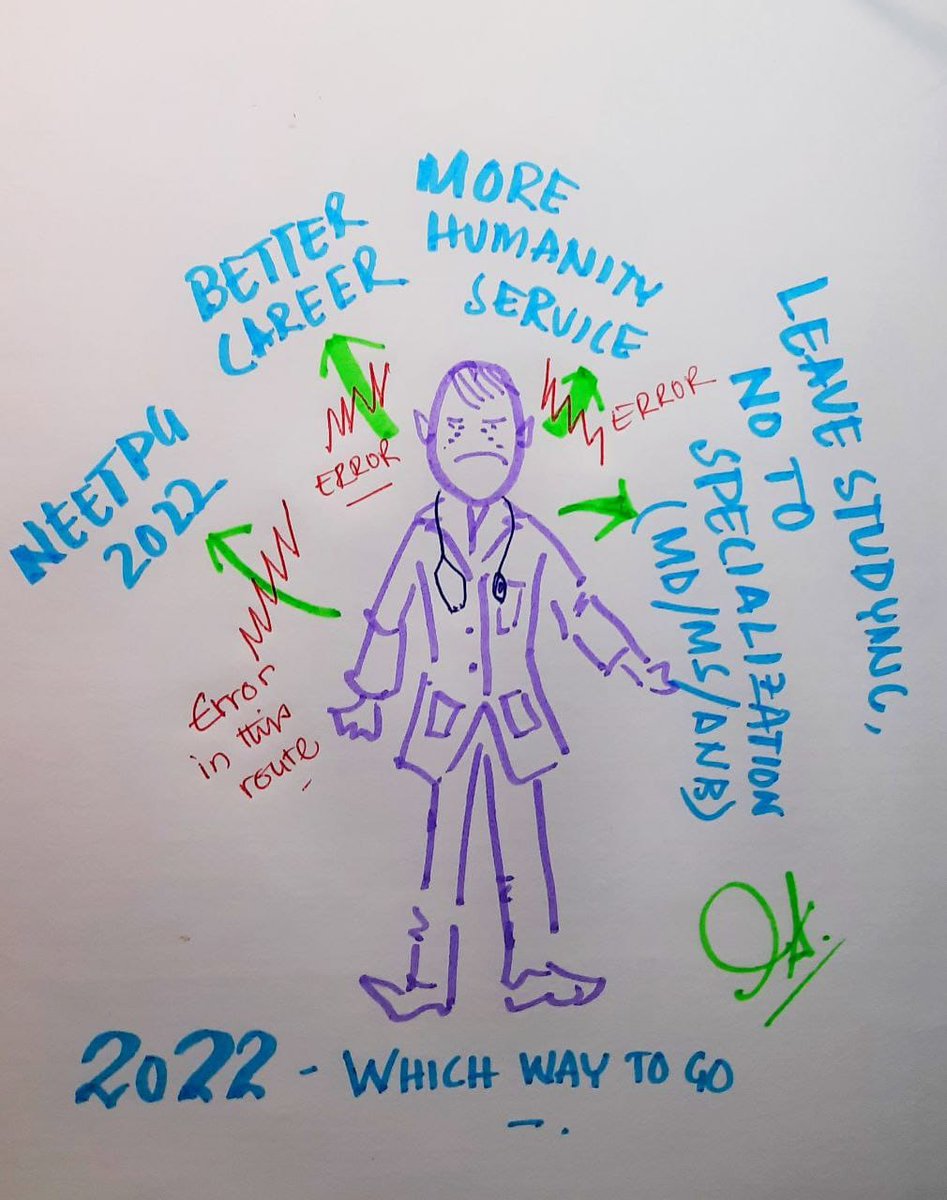 MORE
HUMANITY
SERVICE
BETTER
CAREER
LEAVE STUDYING,
NO TO
SPECIALIZATION
(MD/MS/DNB)
ERROR
ERROR
NEETPG
2022
Error
in this
route
2022 - WHICH WAY TO GO